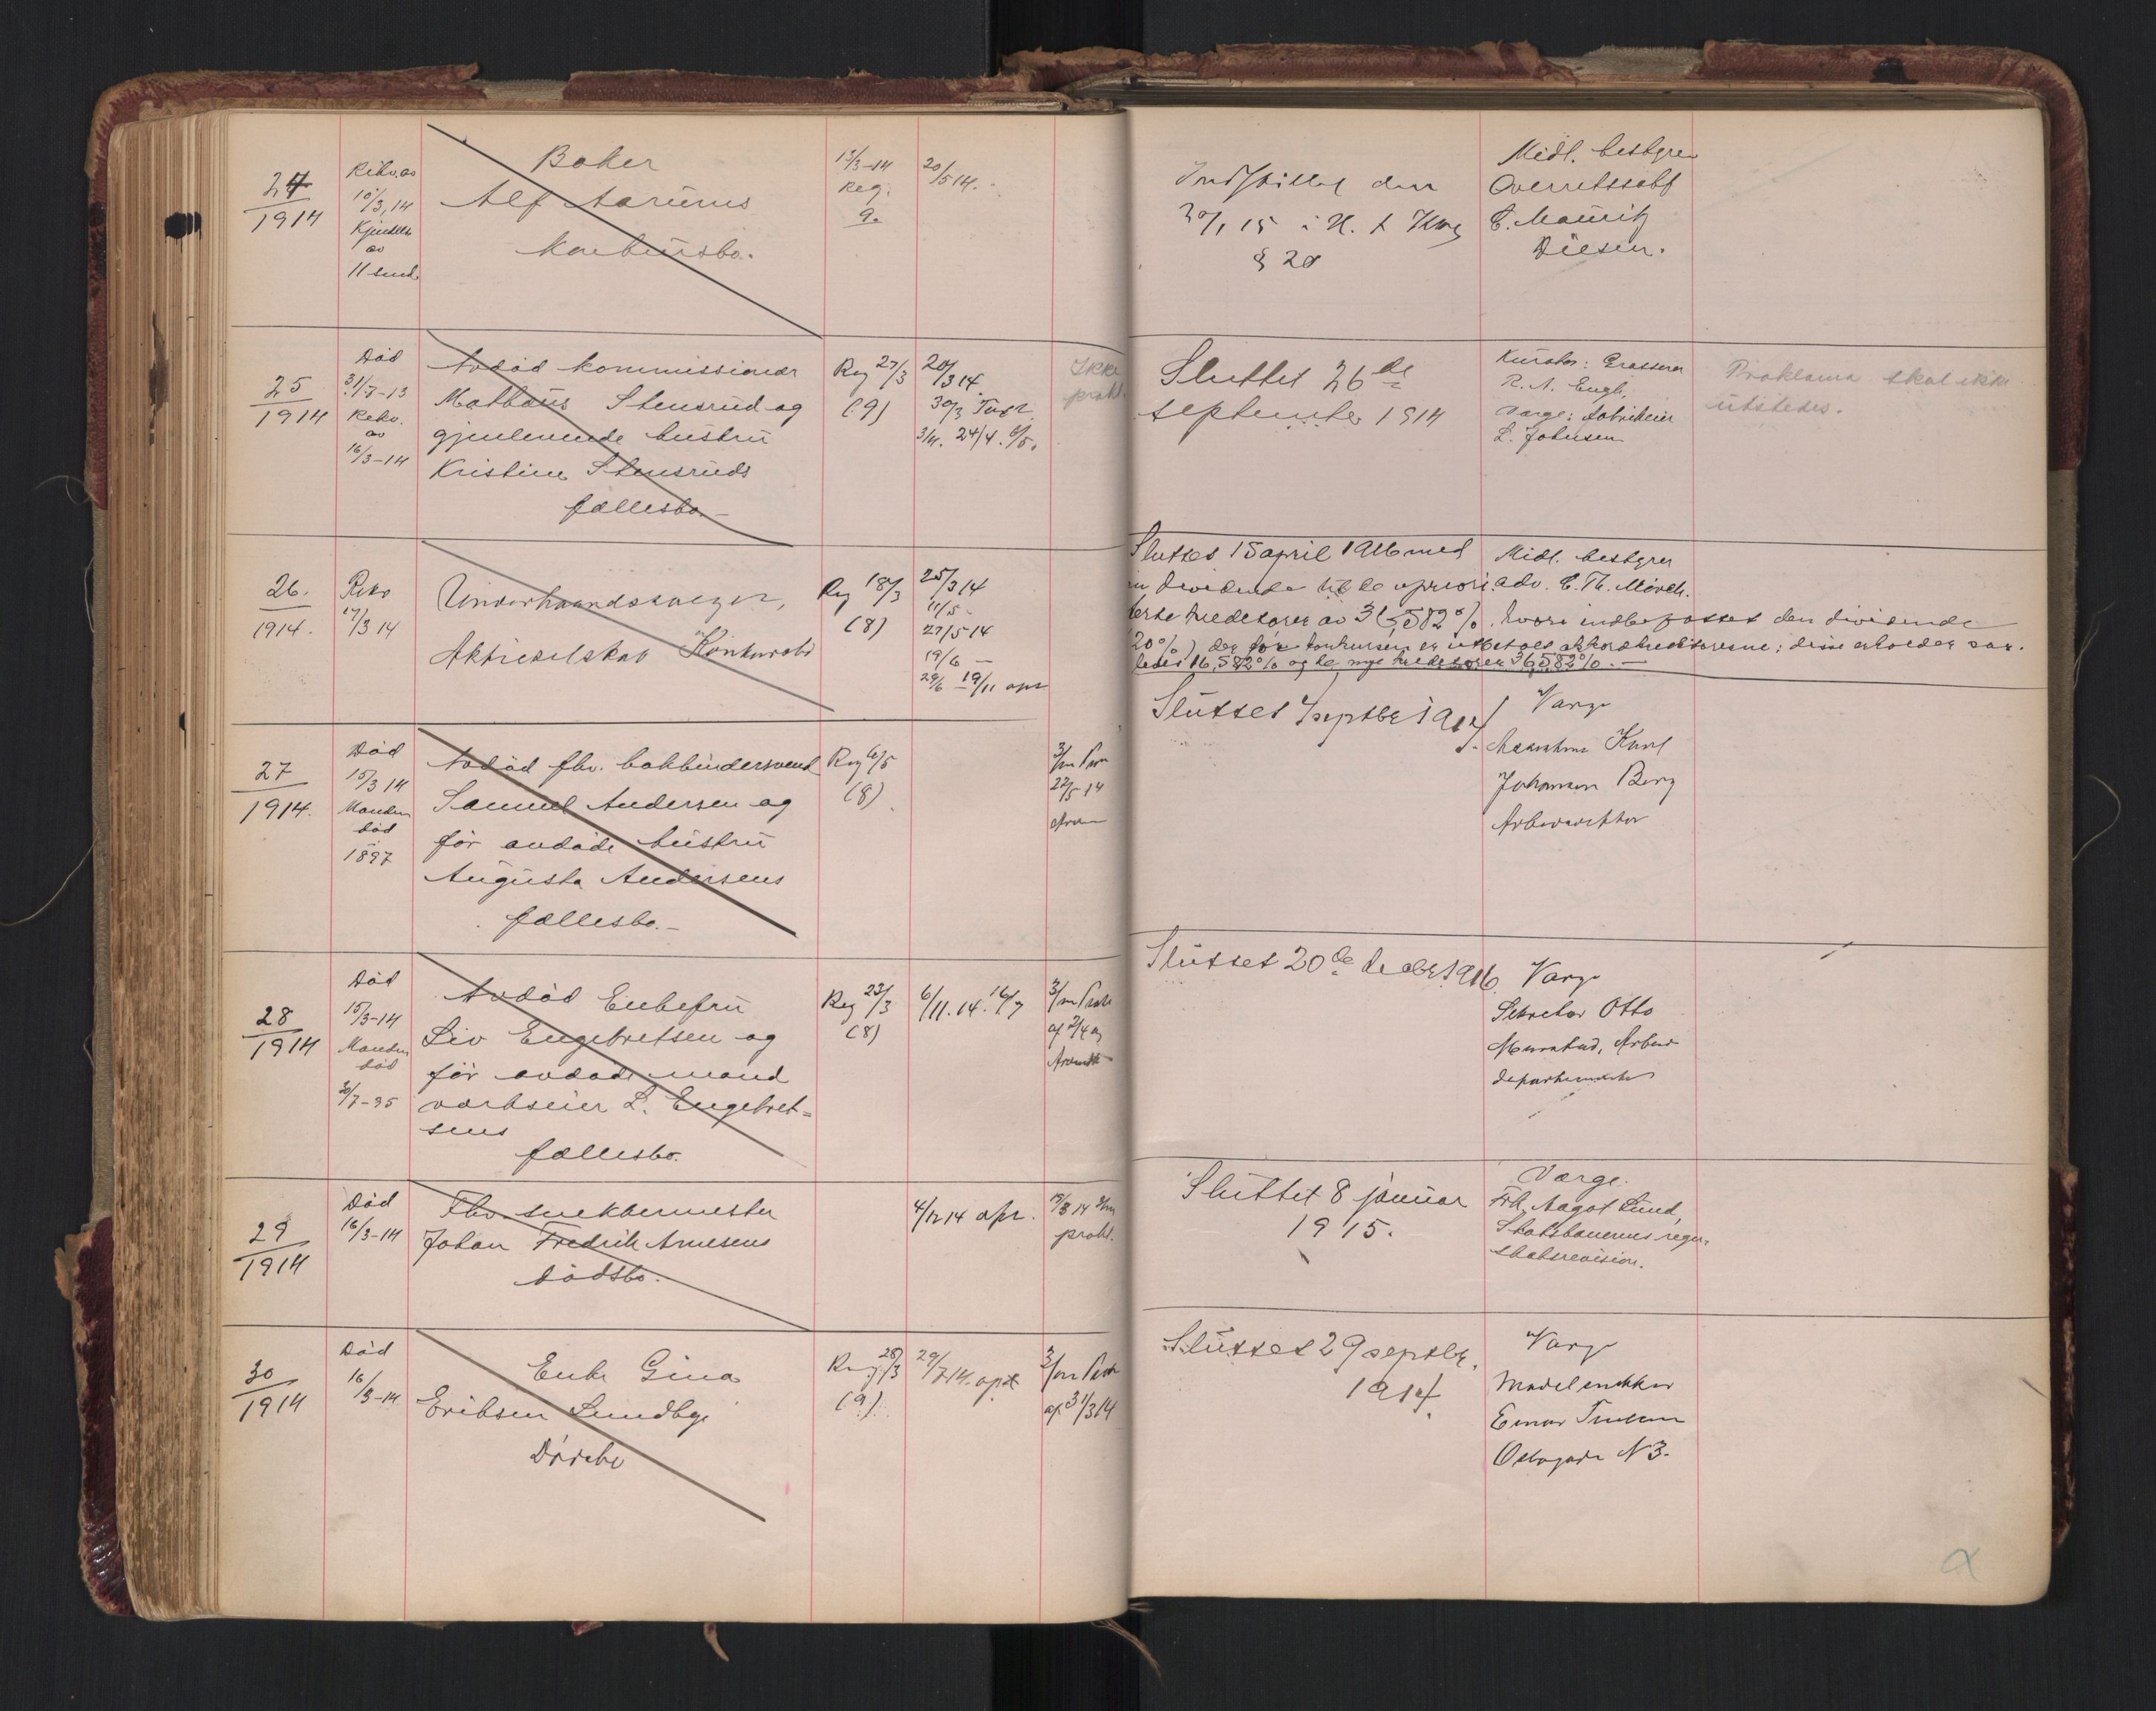 24
1914
Rekv. av
10/3, 14
Kjendelse
av
11 send
Baker
Alf Aarums
konkursbo.
13/3-14
Reg.
9.
20/5 14.
Indstillet den
30/1 15 i H. t. Kkl
§ 20
Midl. bestyrer
Overretssakf
C. Mauritz
Diesen.
25
1914
Død
31/7-13
Rekv.
av
16/3-14
Avdød kommissionær
Mathæus Stensrud og
gjenlevende hustru
Kristine Stensruds
fællesbo.-
Reg 27/3
(9)
20/3 14.
30/3 Taxt
3/4. 24/4. 6/5.
Ikke
prokl.
Sluttet 26de
september 1914
Kurator: Grosserer
R. A. Engh,
Værge: fabrikeier
L. Johnsen
Proklama skal ikke
utstedes.
26.
1914.
Rekv
17/3 14
Underhaandssalget,
Aktieselskab Konkursbo
Reg 18/3
(8)
25/3 14
11/5 -
27/5 14
19/6 -
29/6 - 19/11 apr
Sluttet 15 april 1916 med
en dividende til de uprior. adv. C. Th. Mörch.
Midl. bestyrer
terte kreditorer av 36,582 %, hvori indbefattet den dividende
(20 %), der før konkursen er utbetalt akkordkreditorerne; disse erholder saa-
ledes 16,582 % og de nye kreditorer 36,582 %. -
27
1914.
Død
15/3 14
Manden
død
1897
Avdød fhv. bokbindersvend
Samuel Andersen og
før avdøde hustru
Augusta Andersens
fællesbo.-
Reg 6/5
(8)
3/m Pro
22/5 14
Sluttet 7 septbr 1914.
Værge
Maskinm Karl
Johansen Berg
28
1914
Død
15/3-14
Manden
død
30/7-95
Avdød Enkefru
Liv Engebretsen og
før avdøde mand
verkseier L. Engebret-
sens
fællesbo.
Reg 23/3
(8)
6/11.14. 16/7
3/m Prok
af 2/4 og
Sluttet 20de decbr 1916.
Værge
Sekretær Otto
Arbeids
departementet
29
1914
Død
16/3-14
Fhv. snekkermester
Johan Fredrik Arnesens
dødsbo.
4/12 14 apr.
19/8 14 3/m
prokl.
Sluttet 8 januar
1915.
Værge.
Frk. Aagot Lund,
Statsbanernes regn-
skabsrevision.
30
1914
Død
16/3-14
Enke Gina
Eriksen Lundbys
Dødsbo
Reg 28/3
(9)
29/7 14. apr
3/m Prok
af 31/3 14
Sluttet 29 septbr.
1914.
Værge
Modelsnekker
Einar
Oslogade N 3.